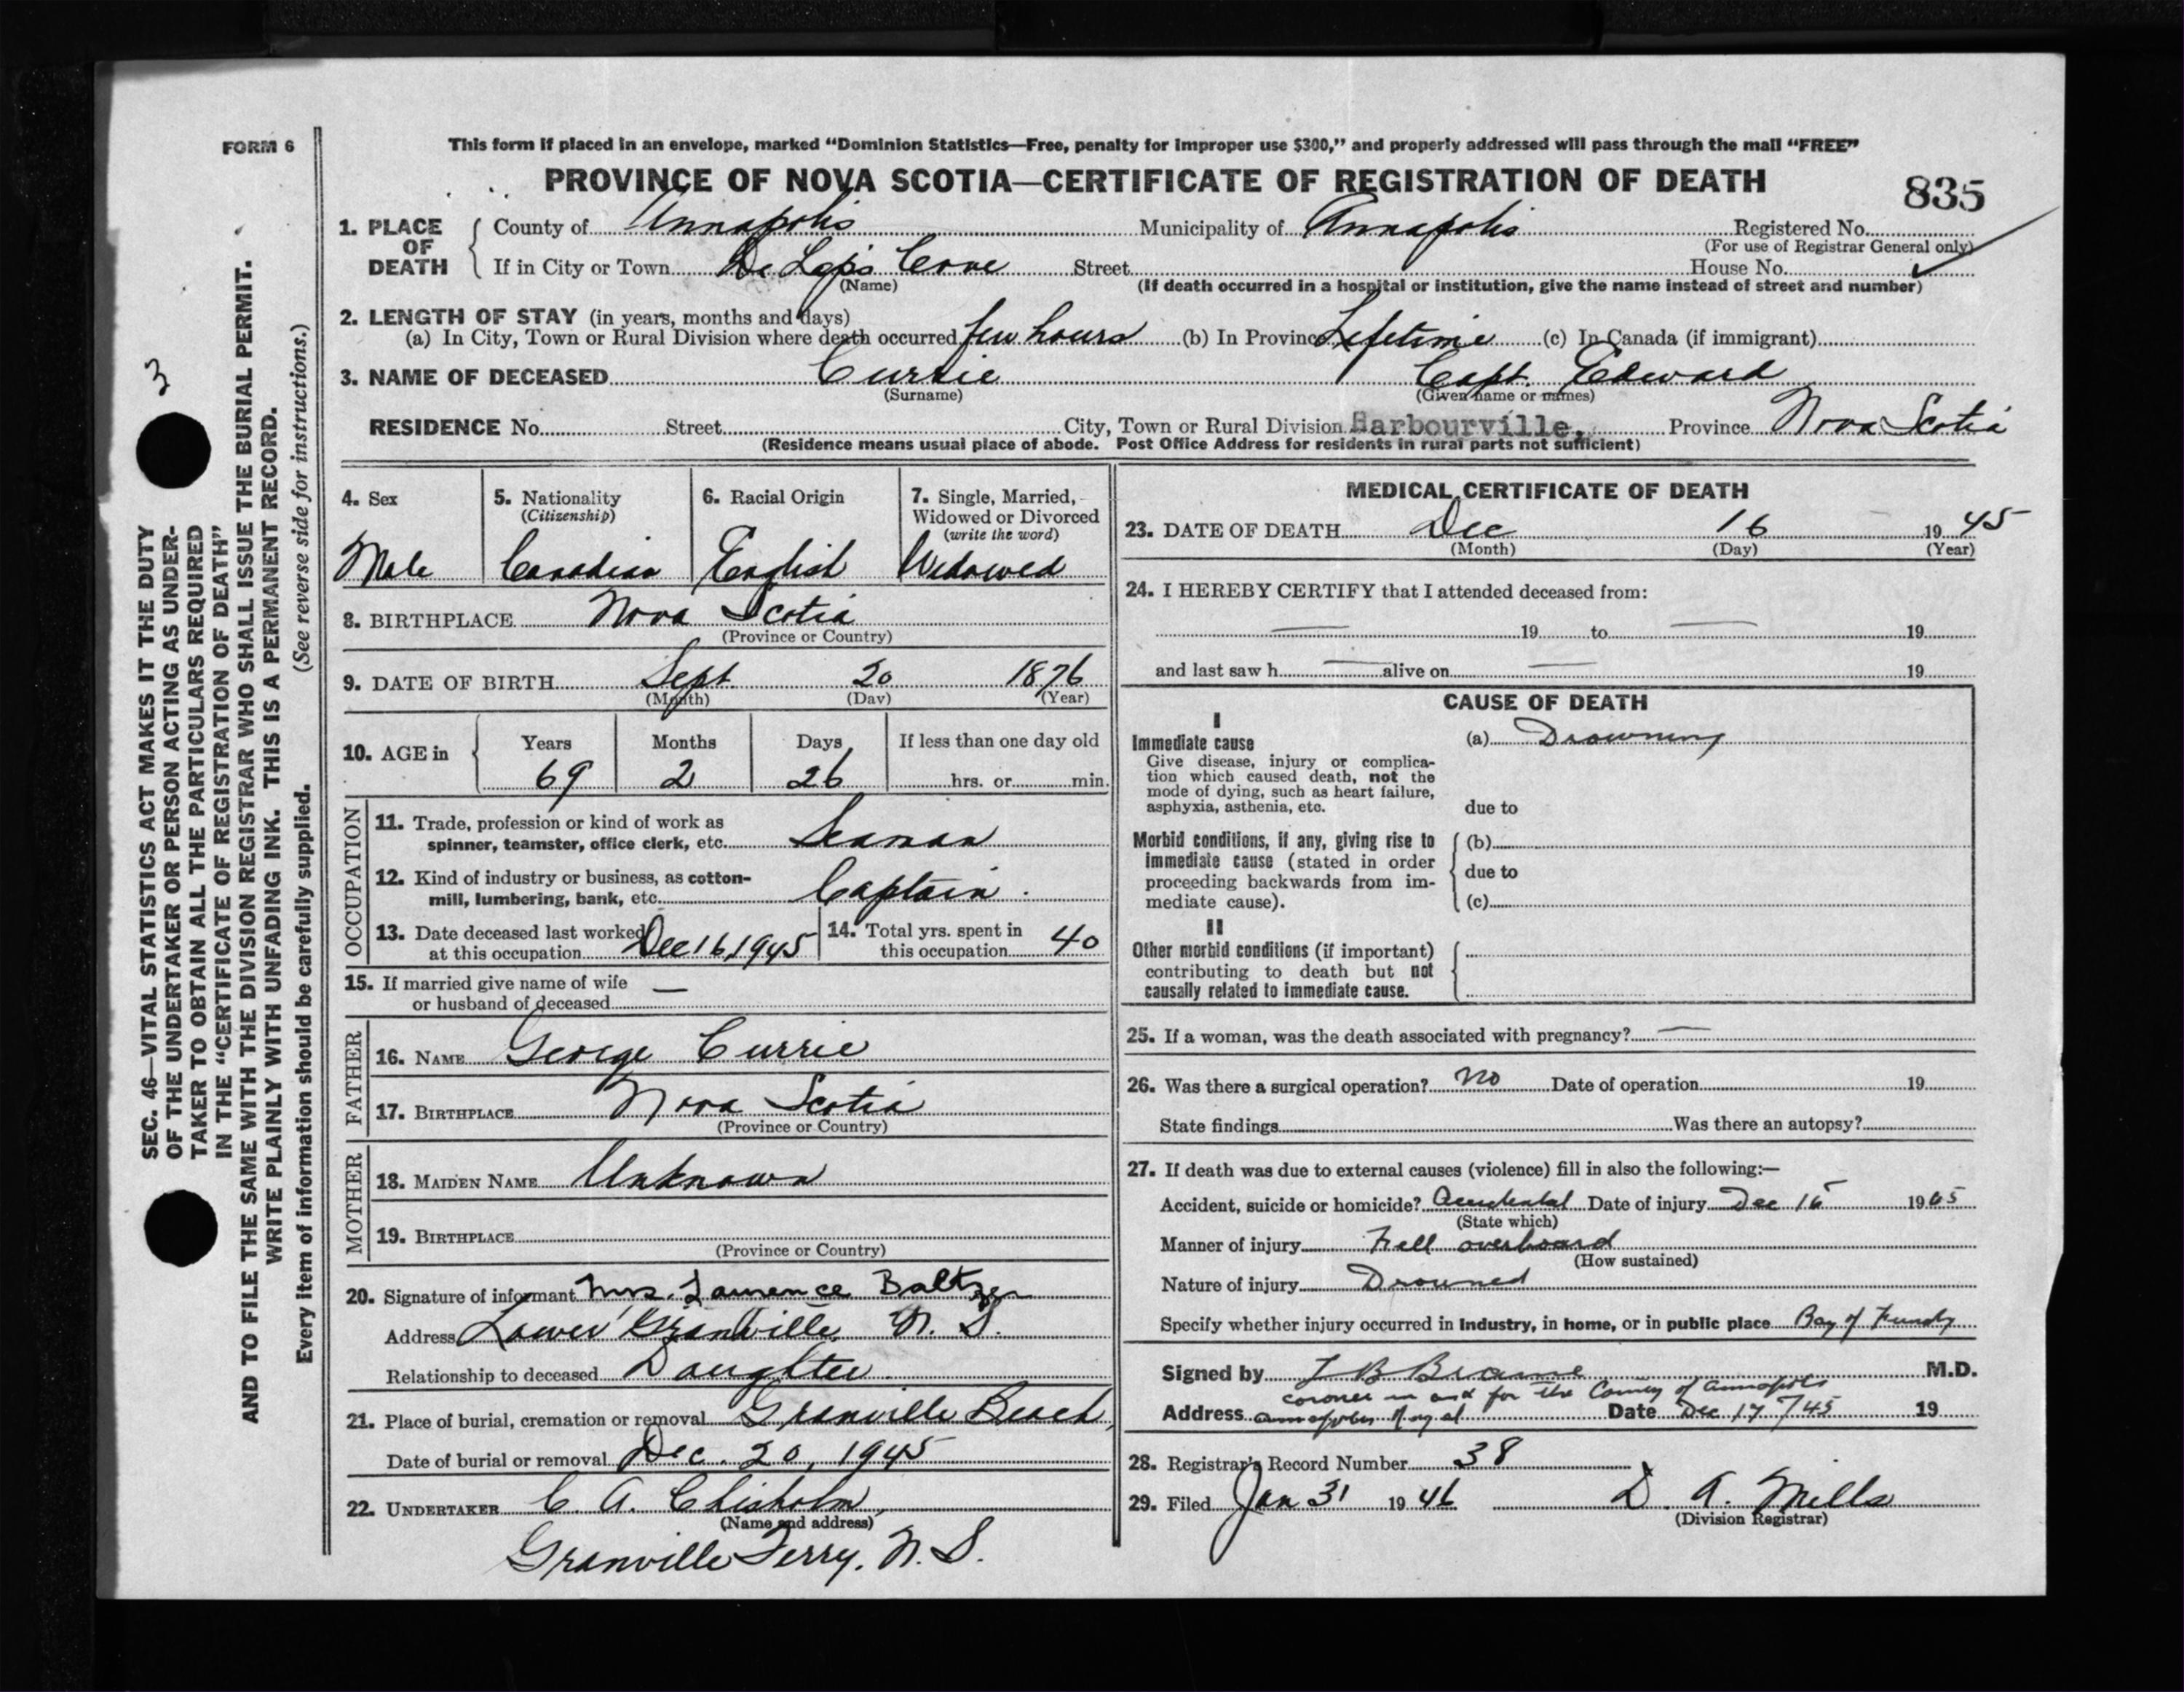 FORM 6
This form if placed in an envelope, marked “Dominion Statistics—Free, penalty for improper use $300,” and properly addressed will pass through the mail “FREE”
PROVINCE OF NOVA SCOTIA—CERTIFICATE OF REGISTRATION OF DEATH
835
1. PLACE OF DEATH
County of Annapolis Municipality of Annapolis Registered No.
(For use of Registrar General only)
If in City or Town Cove Street House No.
(Name) (If death occurred in a hospital or institution, give the name instead of street and number)
2. LENGTH OF STAY (in years, months and days)
(a) In City, Town or Rural Division where death occurred few hours (b) In Province Lifetime (c) In Canada (if immigrant)
3. NAME OF DECEASED Currie Capt. Edward
(Surname) (Given name or names)
RESIDENCE No. Street City, Town or Rural Division Harbourville, Province Nova Scotia
(Residence means usual place of abode. Post Office Address for residents in rural parts not sufficient)
4. Sex
Male
5. Nationality
(Citizenship)
Canadian
6. Racial Origin
English
7. Single, Married,
Widowed or Divorced
(write the word)
Widowed
8. BIRTHPLACE Nova Scotia
(Province or Country)
9. DATE OF BIRTH Sept. 20 1876
(Month) (Day) (Year)
10. AGE in Years Months Days If less than one day old
69 2 26 hrs. or min.
OCCUPATION
11. Trade, profession or kind of work as
spinner, teamster, office clerk, etc. Seaman
12. Kind of industry or business, as cotton-
mill, lumbering, bank, etc. Captain
13. Date deceased last worked
at this occupation Dec 16, 1945
14. Total yrs. spent in
this occupation 40
15. If married give name of wife
or husband of deceased —
FATHER
16. NAME George Currie
17. BIRTHPLACE Nova Scotia
(Province or Country)
MOTHER
18. MAIDEN NAME Unknown
19. BIRTHPLACE
(Province or Country)
20. Signature of informant Mrs. Laurence Baltzer
Address Lower Granville, N. S.
Relationship to deceased Daughter
21. Place of burial, cremation or removal Granville Beach,
Date of burial or removal Dec. 20, 1945
22. UNDERTAKER C. A. Chisholm,
(Name and address)
Granville Ferry, N. S.
MEDICAL CERTIFICATE OF DEATH
23. DATE OF DEATH Dec 16 1945
(Month) (Day) (Year)
24. I HEREBY CERTIFY that I attended deceased from:
— 19 to — 19
and last saw h — alive on — 19
CAUSE OF DEATH
I
Immediate cause
Give disease, injury or complica-
tion which caused death, not the
mode of dying, such as heart failure,
asphyxia, asthenia, etc.
(a) Drowning
due to
Morbid conditions, if any, giving rise to
immediate cause (stated in order
proceeding backwards from im-
mediate cause).
(b)
due to
(c)
II
Other morbid conditions (if important)
contributing to death but not
causally related to immediate cause.
25. If a woman, was the death associated with pregnancy? —
26. Was there a surgical operation? No Date of operation 19
State findings Was there an autopsy?
27. If death was due to external causes (violence) fill in also the following:—
Accident, suicide or homicide? Accidental Date of injury Dec 16 1945
(State which)
Manner of injury Fell overboard
(How sustained)
Nature of injury Drowned
Specify whether injury occurred in Industry, in home, or in public place Bay of Fundy
Signed by M.D.
coroner in and for the County of Annapolis
Address Annapolis Royal Date Dec 17/45 19
28. Registrar's Record Number 38
29. Filed Jan 31 1946 D. A. Mills
(Division Registrar)
3
SEC. 46—VITAL STATISTICS ACT MAKES IT THE DUTY
OF THE UNDERTAKER OR PERSON ACTING AS UNDER-
TAKER TO OBTAIN ALL THE PARTICULARS REQUIRED
IN THE “CERTIFICATE OF REGISTRATION OF DEATH”
AND TO FILE THE SAME WITH THE DIVISION REGISTRAR WHO SHALL ISSUE THE BURIAL PERMIT.
WRITE PLAINLY WITH UNFADING INK. THIS IS A PERMANENT RECORD.
Every item of information should be carefully supplied. (See reverse side for instructions.)